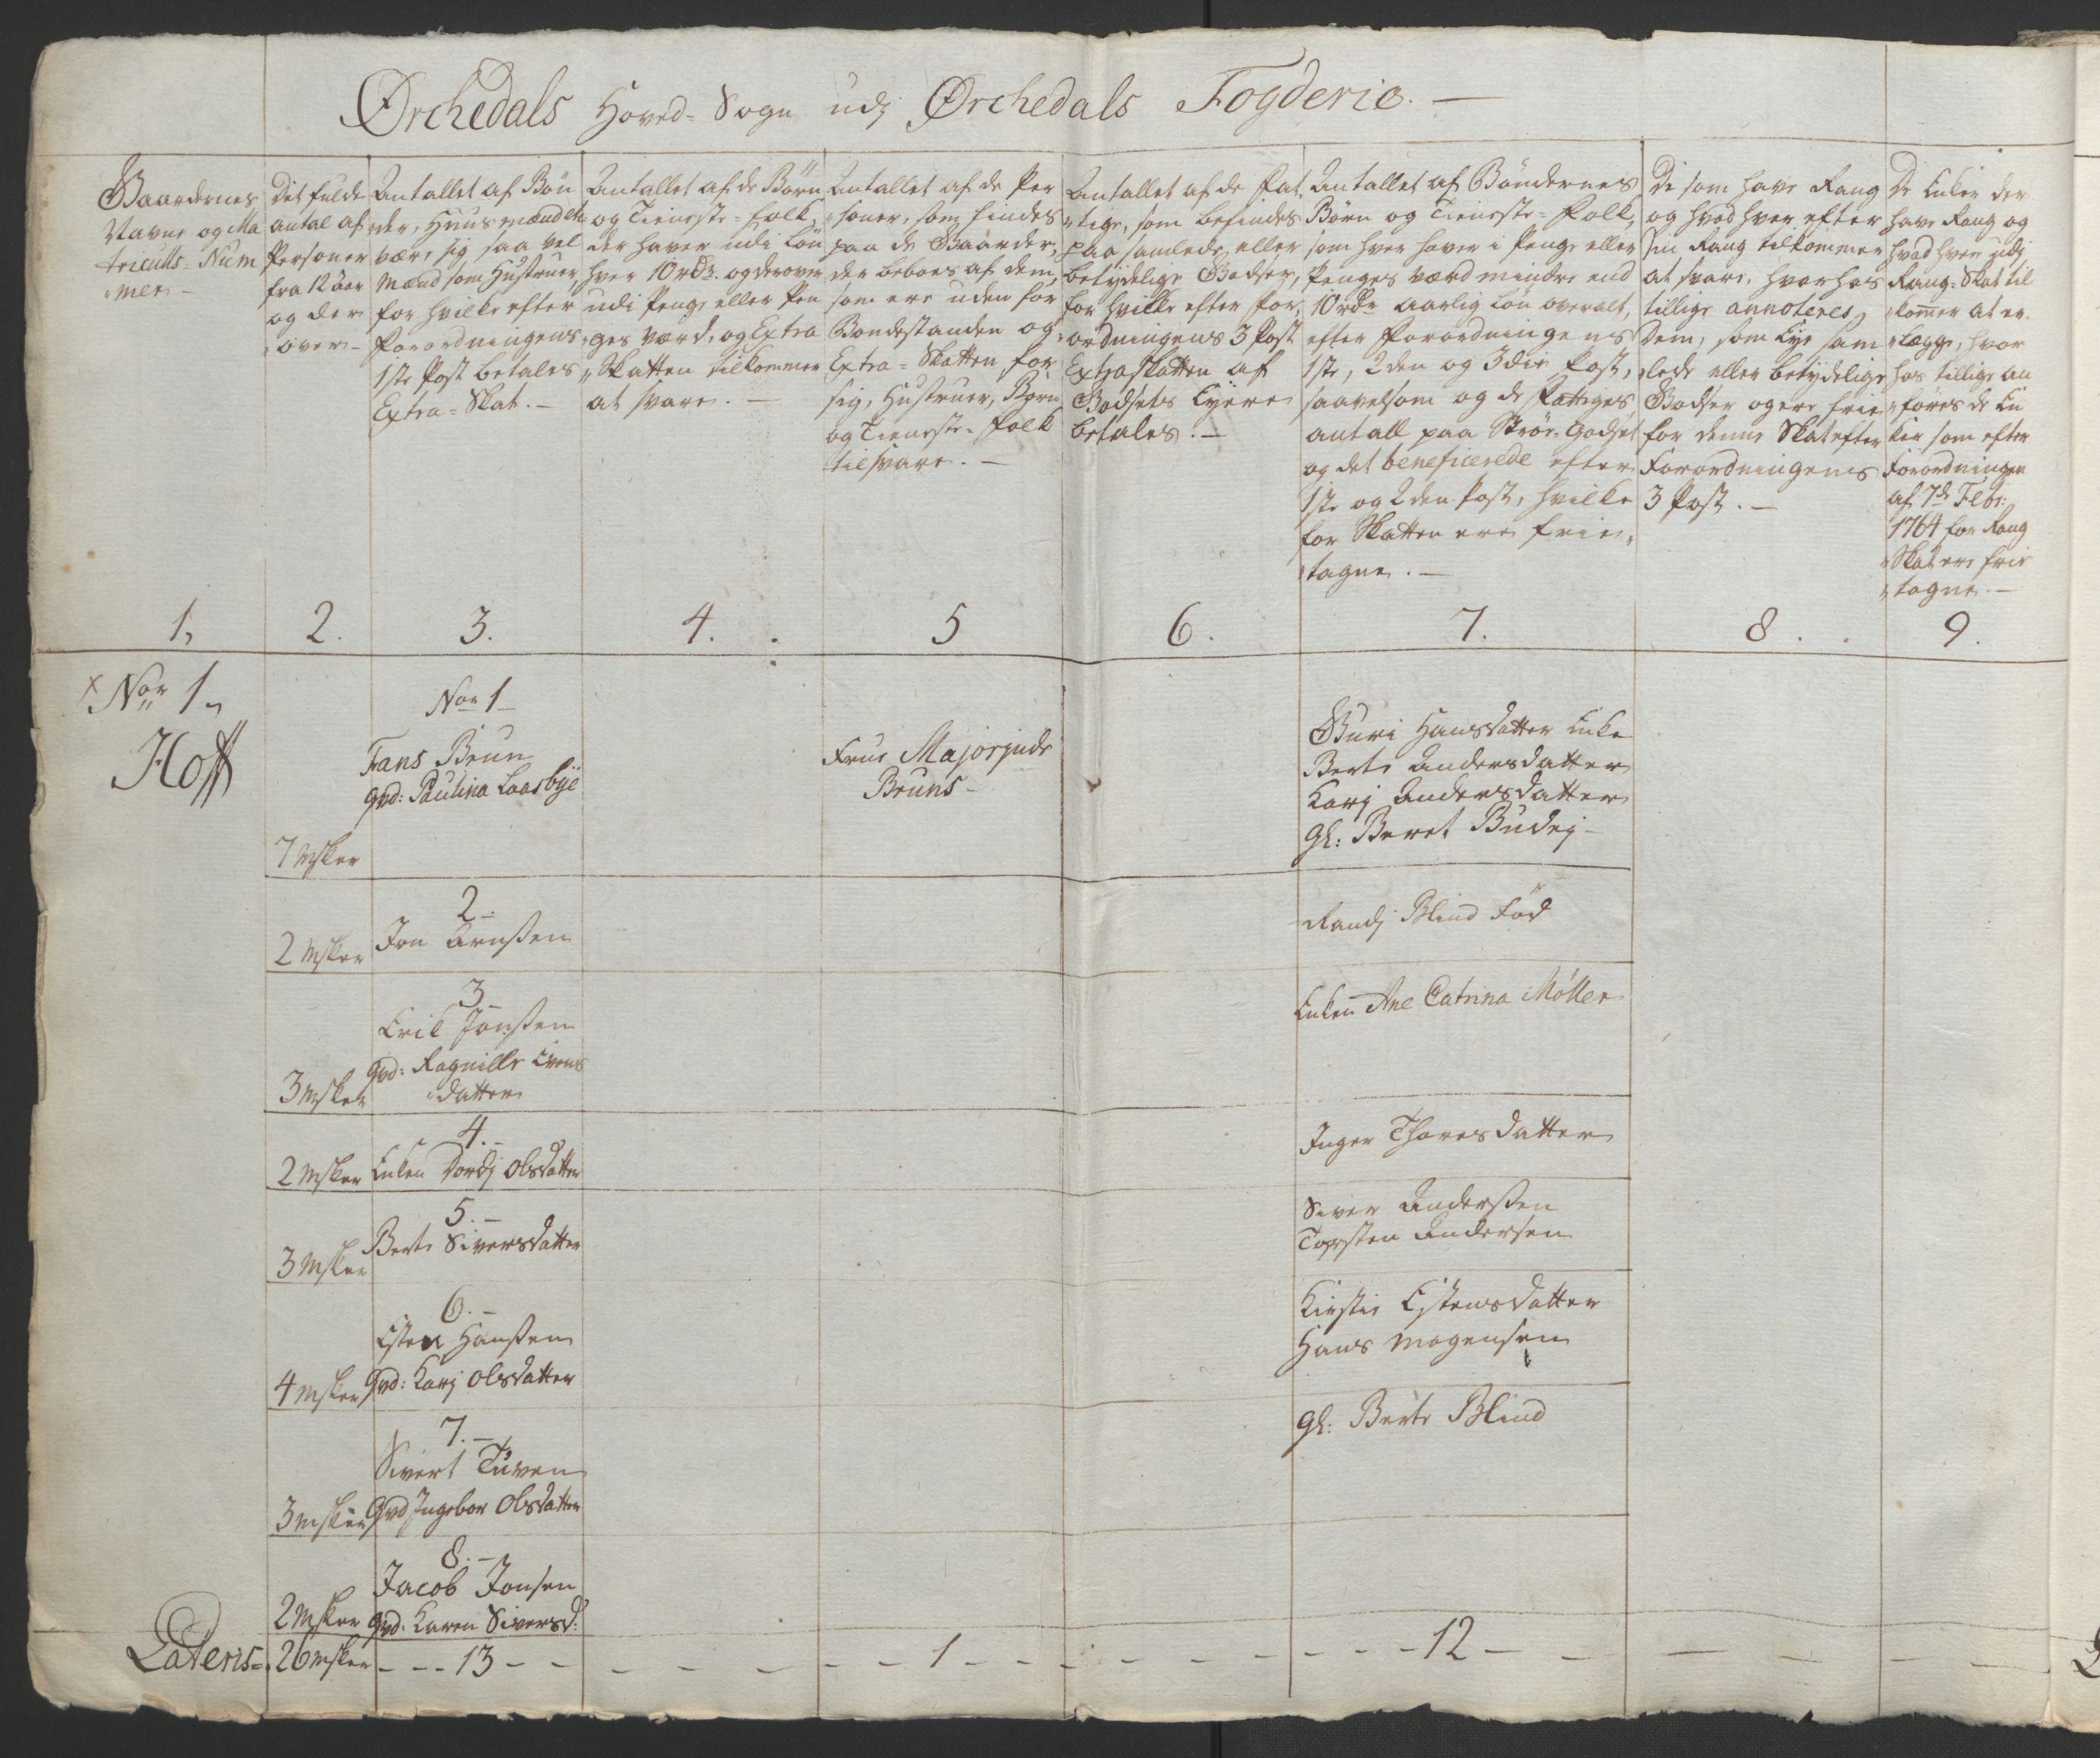 Ørchedals Hoved-Sogn udj Ørchedals Fogderie. —
Gaardernes
Navne og Ma
triculls-Num
mer
Det fulde
antal af
Personer
fra 12 Aar
og der
over
Antallet af Bøn
der, Huusmænd etc
være sig saa vel
Mænd som Hustruer,
for hvilke efter
Forordningens
1ste Post betales
Extra-Skat. —
Antallet af de Børn
og Tieneste-folk,
der haver udi Løn
hver 10 rdr. og derover
udi Penge eller Pen
ges værd, og Extra
Skatten tilkommer
at svare. —
Antallet af de Per
soner, som findes
paa de Gaarder,
der beboes af dem,
som ere uden for
Bondestanden og
Extra-Skatten for
sig, Hustruer, Børn
og Tieneste-folk
tilsvare. —
Antallet af de Fat
tige, som befindes
paa samlede eller
betydelige Godser,
for hvilke efter For
ordningens 3 Post
Extraskatten af
Godsets Eyere
betales. —
Antallet af Bøndernes
Børn og Tieneste-folk,
som hver haver i Penge eller
Penges værd mindre end
10 rdr aarlig Løn overalt,
efter Forordningens
1ste, 2den og 3die Post,
saavelsom og de Fattiges
antall paa Strøe-Godset
og det beneficerede efter
1ste og 2den Post, hvilke
for Skatten ere frie
tagne. —
De som have Rang
og hvad hver efter
sin Rang tilkommer
at svare, hvorhos
tillige annoteres
Dem, som Eye sam
lede eller betydelige
Godser og ere frie
for denne Skat efter
Forordningens
3 Post. —
De Enker der
have Rang og
hvad hver udj
Rang-Skat til
kommer at er
lægge, hvor
hos tillige an
føres de En
ker som efter
Forordningen
af 7de Febr:
1764 for Rang
Skat ere frie
tagne. —
1. 2. 3. 4. 5 6. 7. 8. 9.
x Nor 1.
Hoff
7 Msker
Nor 1
Fans Brun
qvd: Paulina Laasbye
Frue Majorinde
Bruns —
Guri Hansdatter Enke
Berte Andersdatter
Karj Andersdatter
Gl: Beret Budej —
2 Msker
2.
Jon Arnsen
Randj Blind Fød
3 Msker
3
Erik Jonsen
qvd: Ragnille Evens
datter
Enken Ane Catrina Møller
2 Msker
4. —
Enken Dordj Olsdatter
Inger Thoresdatter
3 Msker
5. —
Berte Siversdatter
Siver Andersen
Torsten Andersen
4 Msker
6. —
Esten Hansen
qvd: Karj Olsdatter
Kirstie Estensdatter
Hans Mogensen
3 Msker
7. —
Sivert Tuven
Qvd Ingebor Olsdatter
Gl: Berte Blind
2 Msker
8. —
Jacob Jonsen
qvd: Karen Siversd:
Lateris 26 Msker - - - 13 - - - - - - - - 1 - - - - - - - - - 12 - - - - - -